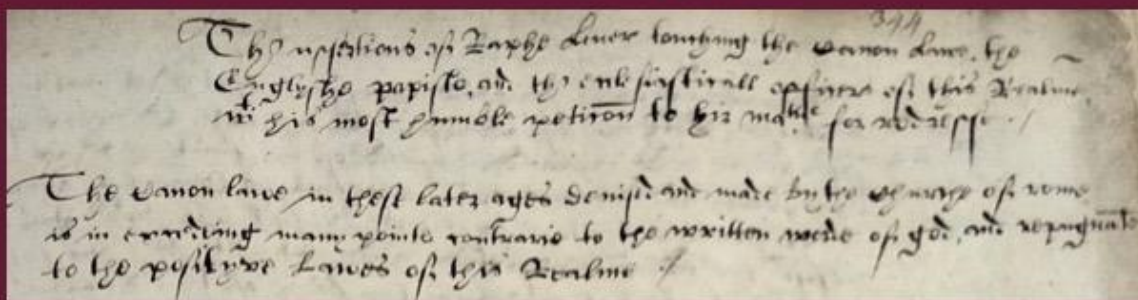 344
The assertions of Raphe Lever touching the Canon Lawe, the
Englyshe papists, and the ecclesiasticall officers of this Realme,
wth his most humble peticion to hir matie for redresse
The Canon lawe in these later ages devised and made by the churche of rome
is in many points contrarie to the written worde of god, and repugnante
to the posityve Lawes of this Realme